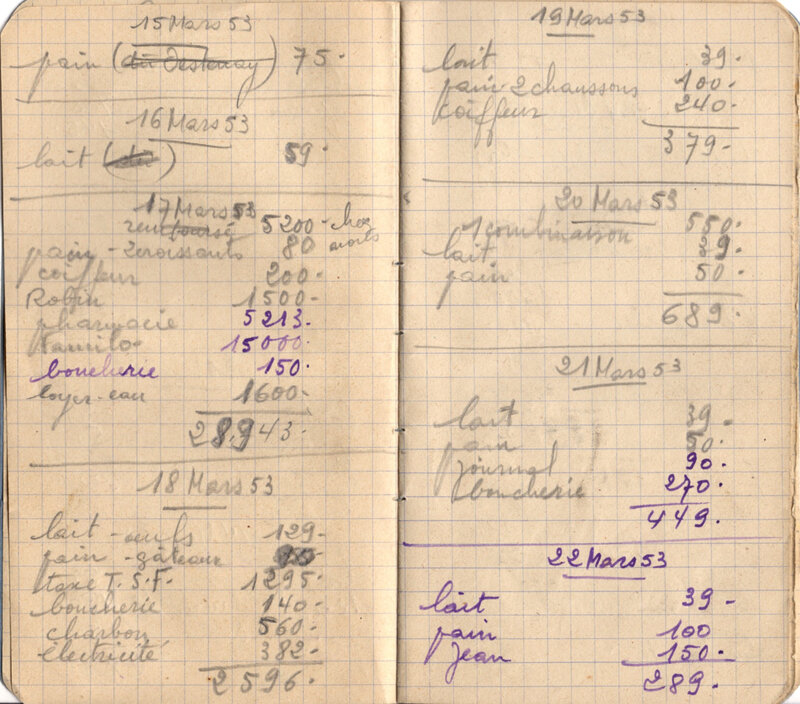 15 Mars 53
pain (dû Destenay) 75.
16 Mars 53
lait (dû) 59.
17 Mars 53
remboursé 5200- hox
morts
pain - 2 croissants 80
coiffeur 200.
Robin 1500-
pharmacie 5213.
15000.
boucherie 150.
loyer-eau 1600-
28.943.
18 Mars 53
lait - œufs 129-
pain - gâteaux
taxe T.S.F. 1295.
boucherie 140-
charbon 560-
électricité 382-
2596.
19 Mars 53
lait 39.
pain 2 chaussons 100-
coiffeur 240-
379-
20 Mars 53
1 combinaison 550.
lait 39.
pain 50.
689.
21 Mars 53
lait 39-
pain 50.
journal 90.
boucherie 270.
449.
22 Mars 53
lait 39-
pain 100
Jean 150.
289.